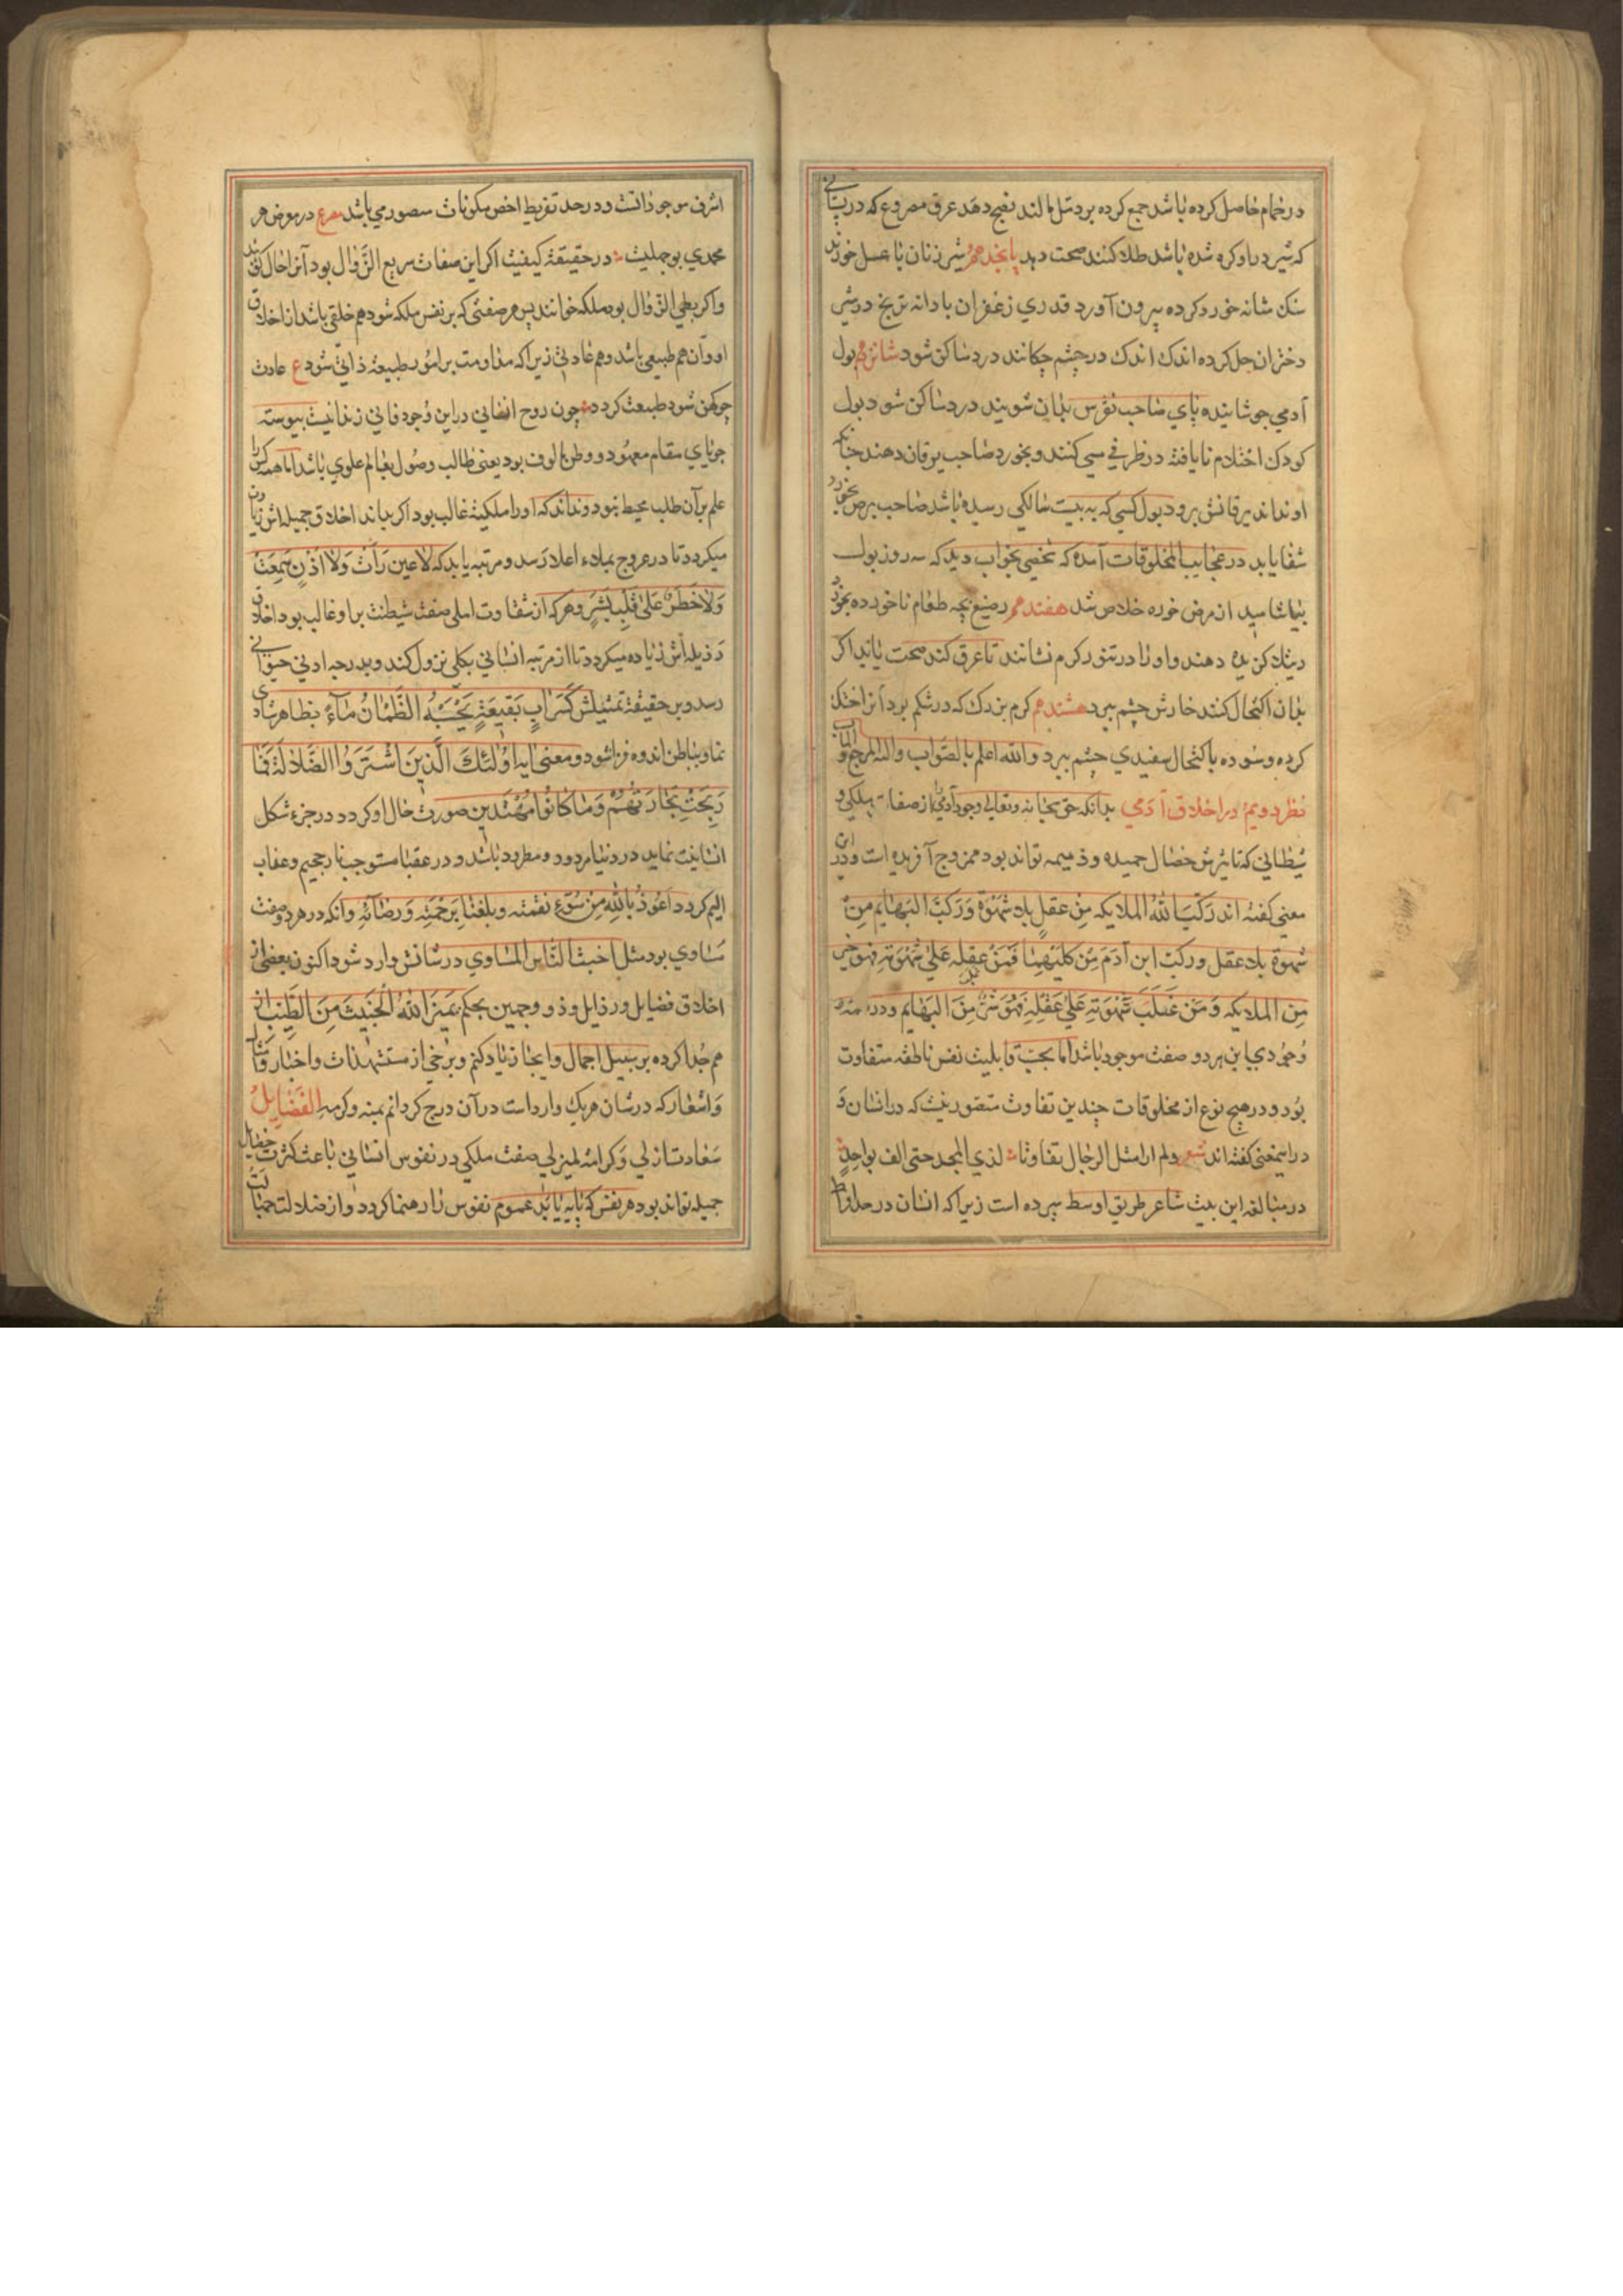 در حمام حاصل کرده باشد جمع کرده بر دمل مالند نضج دهد عرق مصروع که در پستانی
که شیر در او کره شده باشد طلا کنند صحت دهد پانجدهم شیر زنان با عسل خورند
سنک مثانه خورد کرده بیرون آورد قدری زعفران با دانه تریخ در شیر
دختران حل کرده اندک اندک در چشم چکانند درد ساکن شود شانزدهم بول
آدمی جوشانیده پای صاحب نقرس بدان شویند درد ساکن شود بول
کودک احتلام نایافته در ظرفی مسی کنند و بخورد صاحب یرقان دهند چنانکه
او نداند یرقانش برود بول کسی که به بیست سالکی رسیده باشد صاحب برص بخورد
شفا یابد در عجایب المخلوقات آمده که شخصی بخواب دید که سه روز بول
بیاشامید از مرض خوره خلاص شد هفتدهم رضیع بچه طعام ناخورده بخورد
دهند و او را در تنور کرم نشانند تا عرق کند صحت یابد اکر
بدان اکتحال کنند خارش چشم ببرد هشتدهم کرم بزرک که در شکم بود آنرا خشک
کرده و سوده باکتحال سفیدی چشم ببرد والله اعلم بالصواب والیه المرجع والمآب
نظر دویم در اخلاق آدمی بدانکه حق سبحانه و تعالی وجود آدمی را از صفات ملکی و
شیطانی که تاثیرش خصال حمیده و ذمیمه تواند بود ممزوج آفریده است و در این
معنی کفته اند رَکَّبَ اللهُ الملایکه مِن عقلٍ بلا شَهْوَة وَرَکَّبَ البَهایم مِنْ
شهوة بلا عقل و رکبَ ابن آدَمَ مِنْ کلیهما فَمَنْ غلب عقله عَلیٰ شَهْوَتِهِ فهو خیر
مِنَ الملایکه وَمَن غَلَبَ شَهْوَتهِ عَلیٰ عَقْلِهِ فَهُوَ شَرٌّ مِنَ البَهَایم و در هر
وجودی با این هر دو صفت موجود باشد اما بحسب قابلیت نفس ناطقه متفاوت
بود و در هیچ نوع از مخلوقات چندین تفاوت متصور نیست که در انسان و
در اینمعنی کفته اند شعر ولم ار امثل الرجال تفاوتا لذی المجد حتی الف بواحدٍ
در مبالغه این بیت شاعر طریق اوسط سپرده است زیرا که انسان در حد افراط
اشرف موجوداتست و در حد تفریط اخص مکونات متصور می باشد مصرع در معرض هر
محمدی بوجهلیست در حقیقة کیفیت اکر این صفات سریع الزَّوال بود آنرا حال کویند
و اکر بطی الزوال بود ملکه خوانند پس هر صفتی که بر نفس ملکه شود هم خلقی باشد از اخلاق
او و آن هم طبیعی باشد و هم عادتی زیرا که مداومت بر امور طبیعة ذاتی شود ع عادت
چو کهن شود طبیعت کردد چون روح انسانی در این وجود فانی زندانیست پیوسته
جویای مقام معهود و وطن مالوف بود یعنی طالب وصول بعالم علوی باشد اما همه کس را
علم بر آن طلب محیط نبود و نداند که او را ملکیت غالب بود اکر بداند اخلاق جمیله اش زیادت
میکردد تا در عروج بملاء اعلا رسد و مرتبه یابد که لا عین رَأَتْ وَلا اُذُنٍ سَمِعَتْ
وَلا خَطَرَ عَلیٰ قَلْبِ بَشَرٍ و هر که از شقاوت اصلی صفت شیطنت بر او غالب بود اخلاق
رذیله اش زیاده میکردد تا از مرتبه انسانی بکلی نزول کند و بدرجه ادنی حیوانی
رسد و بر حقیقة تمثیلش کَسَرابٍ بَقیعَةٍ یَحْسَبُهُ الظَّمْاٰنُ مٰآءً بظاهر شادی
نماید و بباطن اندوه فزا شود و معنی ایه اُولٰئِکَ الَّذینَ اشْتَرَوُا الضَّلالَةَ فَمٰا
رَبِحَتْ تِجٰارَتُهُمْ وَمٰا کٰانُوا مُهْتَدین صورت حال او کردد در جزء شکل
انسانیت نماید در دنیا مردود و مطرود باشد و در عقبا مستوجب نار جحیم و عذاب
الیم کردد اَعُوذُ باللهِ مِنْ سُوْءِ نقمته و بلغنا بِرَحْمَتِهِ وَرضائِهِ و انکه در هر دو صفت
مساوی بود مثل اخبث النّاس المساوی در شانش وارد شود اکنون بعضی از
اخلاق فضایل و رذایل و ذو وجهین بحکم یمیز اللهُ الْخَبیثَ مِنَ الطَّیِّبِ از
هم جدا کرده بر سبیل اجمال و ایجاز یاد کنم و برخی از مستشهدات و اخبار و آیات
و اشعار که در شان هر یک وارد است در آن درج کردانم بمنه و کرمه الْفَضٰایِلُ
سعادت ازلی و کرامة لم یزلی صفت ملکی در نفوس انسانی باعث کثرت خصال
جمیله تواند بود هر نفس که پایه یابد عموم نفوس را رهنما کردد و از ضلالت